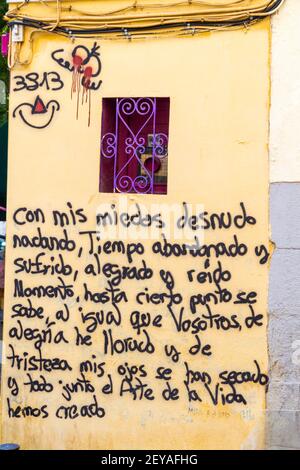 3813
con mis miedos desnudo
nadando, Tiempo abandonado y
sufrido, alegrado y reido
Momento, hasta cierto punto se
sabe, al igual que Vosotros, de
alegria he llorado y de
tristeza mis ojos se han secado
y todo junto el Arte de la Vida
hemos creado
alamy
Image ID: 2EYAFHG
www.alamy.com